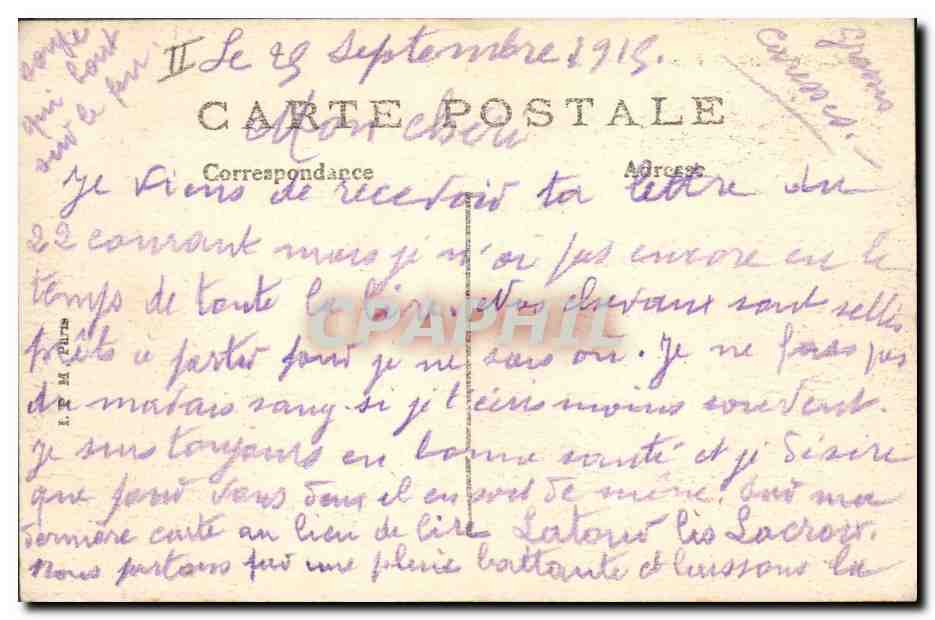 II Le 29 Septembre 1915.
CARTE POSTALE
Mon chéri
Correspondance
Adresse
Je viens de recevoir ta lettre du
22 courant mais je n'ai pas encore eu le
temps de toute la lire. Nos chevaux sont sellés
prêts à partir pour je ne sais où. Je ne fais pas
du mauvais sang si je t'écris moins souvent.
Je suis toujours en bonne santé et je désire
que pour vous deux il en soit de même. Sur ma
dernière carte au lieu de lire Latour lis Lacroix.
Nous partons par une pluie battante et laissons la
soupe
qui bout
sur le feu
Grosses
Caresses.
I. P. M. Paris
CPAPHIL